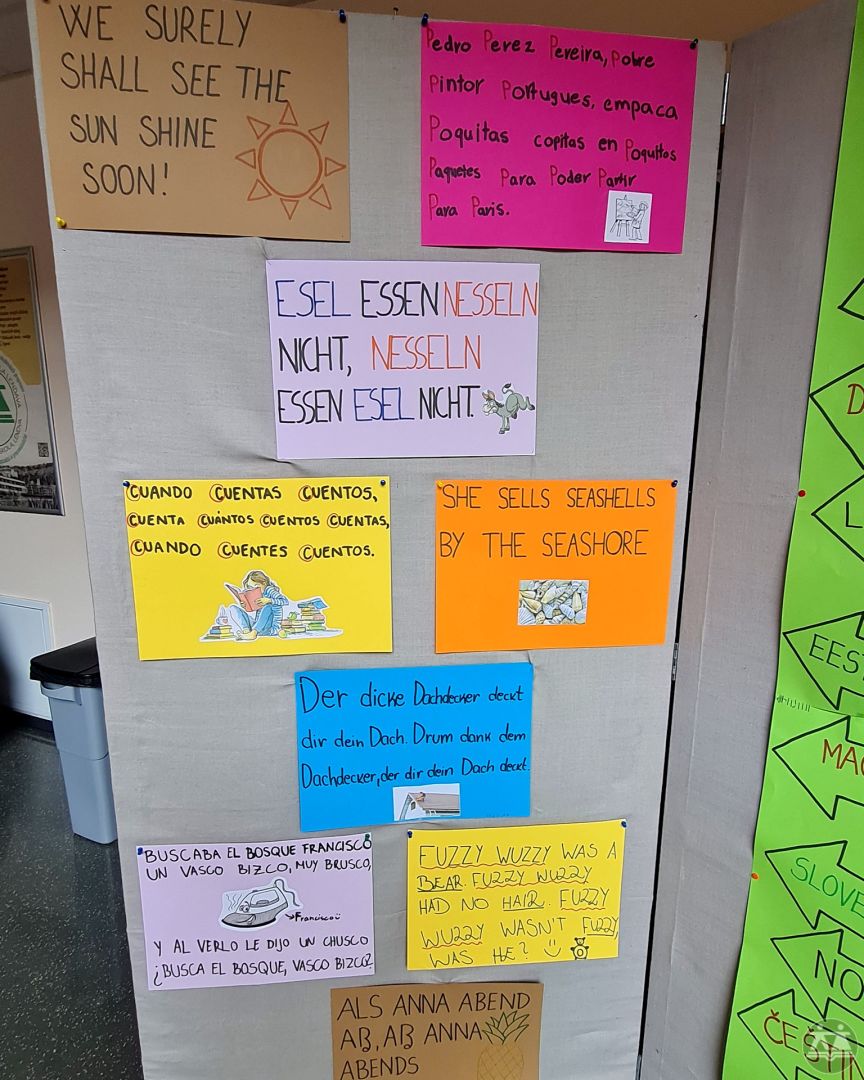 WE SURELY
SHALL SEE THE
SUN SHINE
SOON!
Pedro Perez Pereira, Pobre
Pintor Portugues, empaca
Poquitas copitas en Poquitos
Paquetes Para Poder Partir
Para Paris.
ESEL ESSEN NESSELN
NICHT, NESSELN
ESSEN ESEL NICHT.
CUANDO CUENTAS CUENTOS,
CUENTA CUÁNTOS CUENTOS CUENTAS,
CUANDO CUENTES CUENTOS.
SHE SELLS SEASHELLS
BY THE SEASHORE
Der dicke Dachdecker deckt
dir dein Dach. Drum dank dem
Dachdecker, der dir dein Dach deckt.
BUSCABA EL BOSQUE FRANCISCO
UN VASCO BIZCO, MUY BRUSCO,
Francisco
Y AL VERLO LE DIJO UN CHUSCO
¿BUSCA EL BOSQUE, VASCO BIZCO?
FUZZY WUZZY WAS A
BEAR. FUZZY WUZZY
HAD NO HAIR. FUZZY
WUZZY WASN'T FUZZY,
WAS HE?
ALS ANNA ABEND
Aß, Aß ANNA
ABENDS
EEST
MA
SLOVE
NO
ČEŠTIN